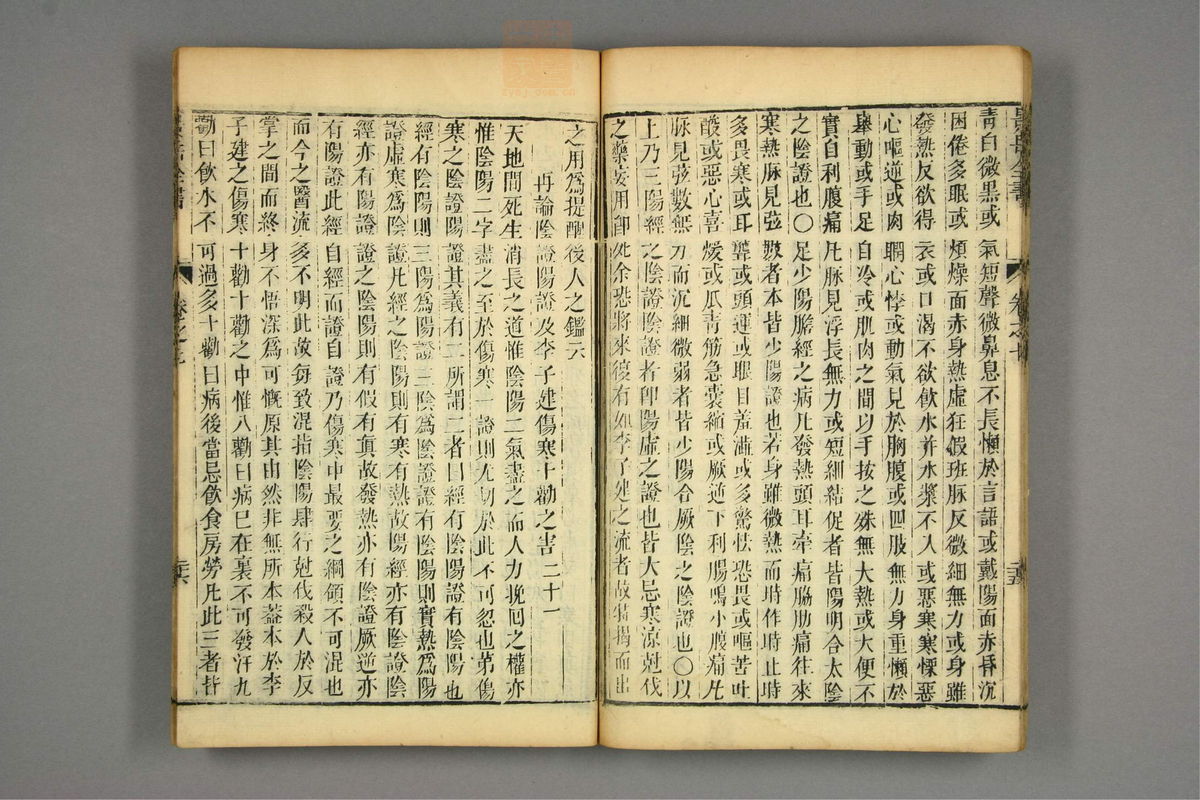 青白微黑或氣短聲微鼻息不長懶於言語或戴陽面赤昏沉
困倦多眠或煩燥面赤身熱虛狂假班脉反微細無力或身雖
發熱反欲得衣或口渴不欲飲水并水漿不入或惡寒寒慄惡
心嘔逆或肉瞤心悸或動氣見於胸腹或四肢無力身重懶於
舉動或手足自冷或肌肉之間以手按之殊無大熱或大便不
實自利腹痛凡脉見浮長無力或短細結促者皆陽明合太陰
之陰證也○足少陽膽經之病凡發熱頭耳牽痛脇肋痛往來
寒熱脉見弦數者本皆少陽證也若身雖微熱而時作時止時
多畏寒或耳聾或頭運或眼目羞澁或多驚怯恐畏或嘔苦吐
酸或惡心喜煖或爪青筋急囊縮或厥逆下利腸鳴小腹痛凡
脉見弦數無力而沉細微弱者皆少陽合厥陰之陰證也○以
上乃三陽經之陰證陰證者卽陽虛之證也皆大忌寒涼尅伐
之藥妄用卽死余恐將來復有如李子建之流者故特揭而出
之用爲提醒後人之鑑云
再論陰證陽證及李子建傷寒十勸之害二十一
天地間死生消長之道惟陰陽二氣盡之而人力挽回之權亦
惟陰陽二字盡之至於傷寒一證則尤切於此不可忽也第傷
寒之陰證陽證其義有二所謂二者曰經有陰陽證有陰陽也
經有陰陽則三陽爲陽證三陰爲陰證證有陰陽則實熱爲陽
證虛寒爲陰證凡經之陰陽則有寒有熱故陽經亦有陰證陰
經亦有陽證證之陰陽則有假有眞故發熱亦有陰證厥逆亦
有陽證此經自經而證自證乃傷寒中最要之綱領不可混也
而今之醫流多不明此故每致混指陰陽肆行尅伐殺人於反
掌之間而終身不悟深爲可慨原其由然非無所本蓋本於李
子建之傷寒十勸十勸之中惟八勸曰病已在裏不可發汗九
勸曰飲水不可過多十勸曰病後當忌飲食房勞凡此三者皆